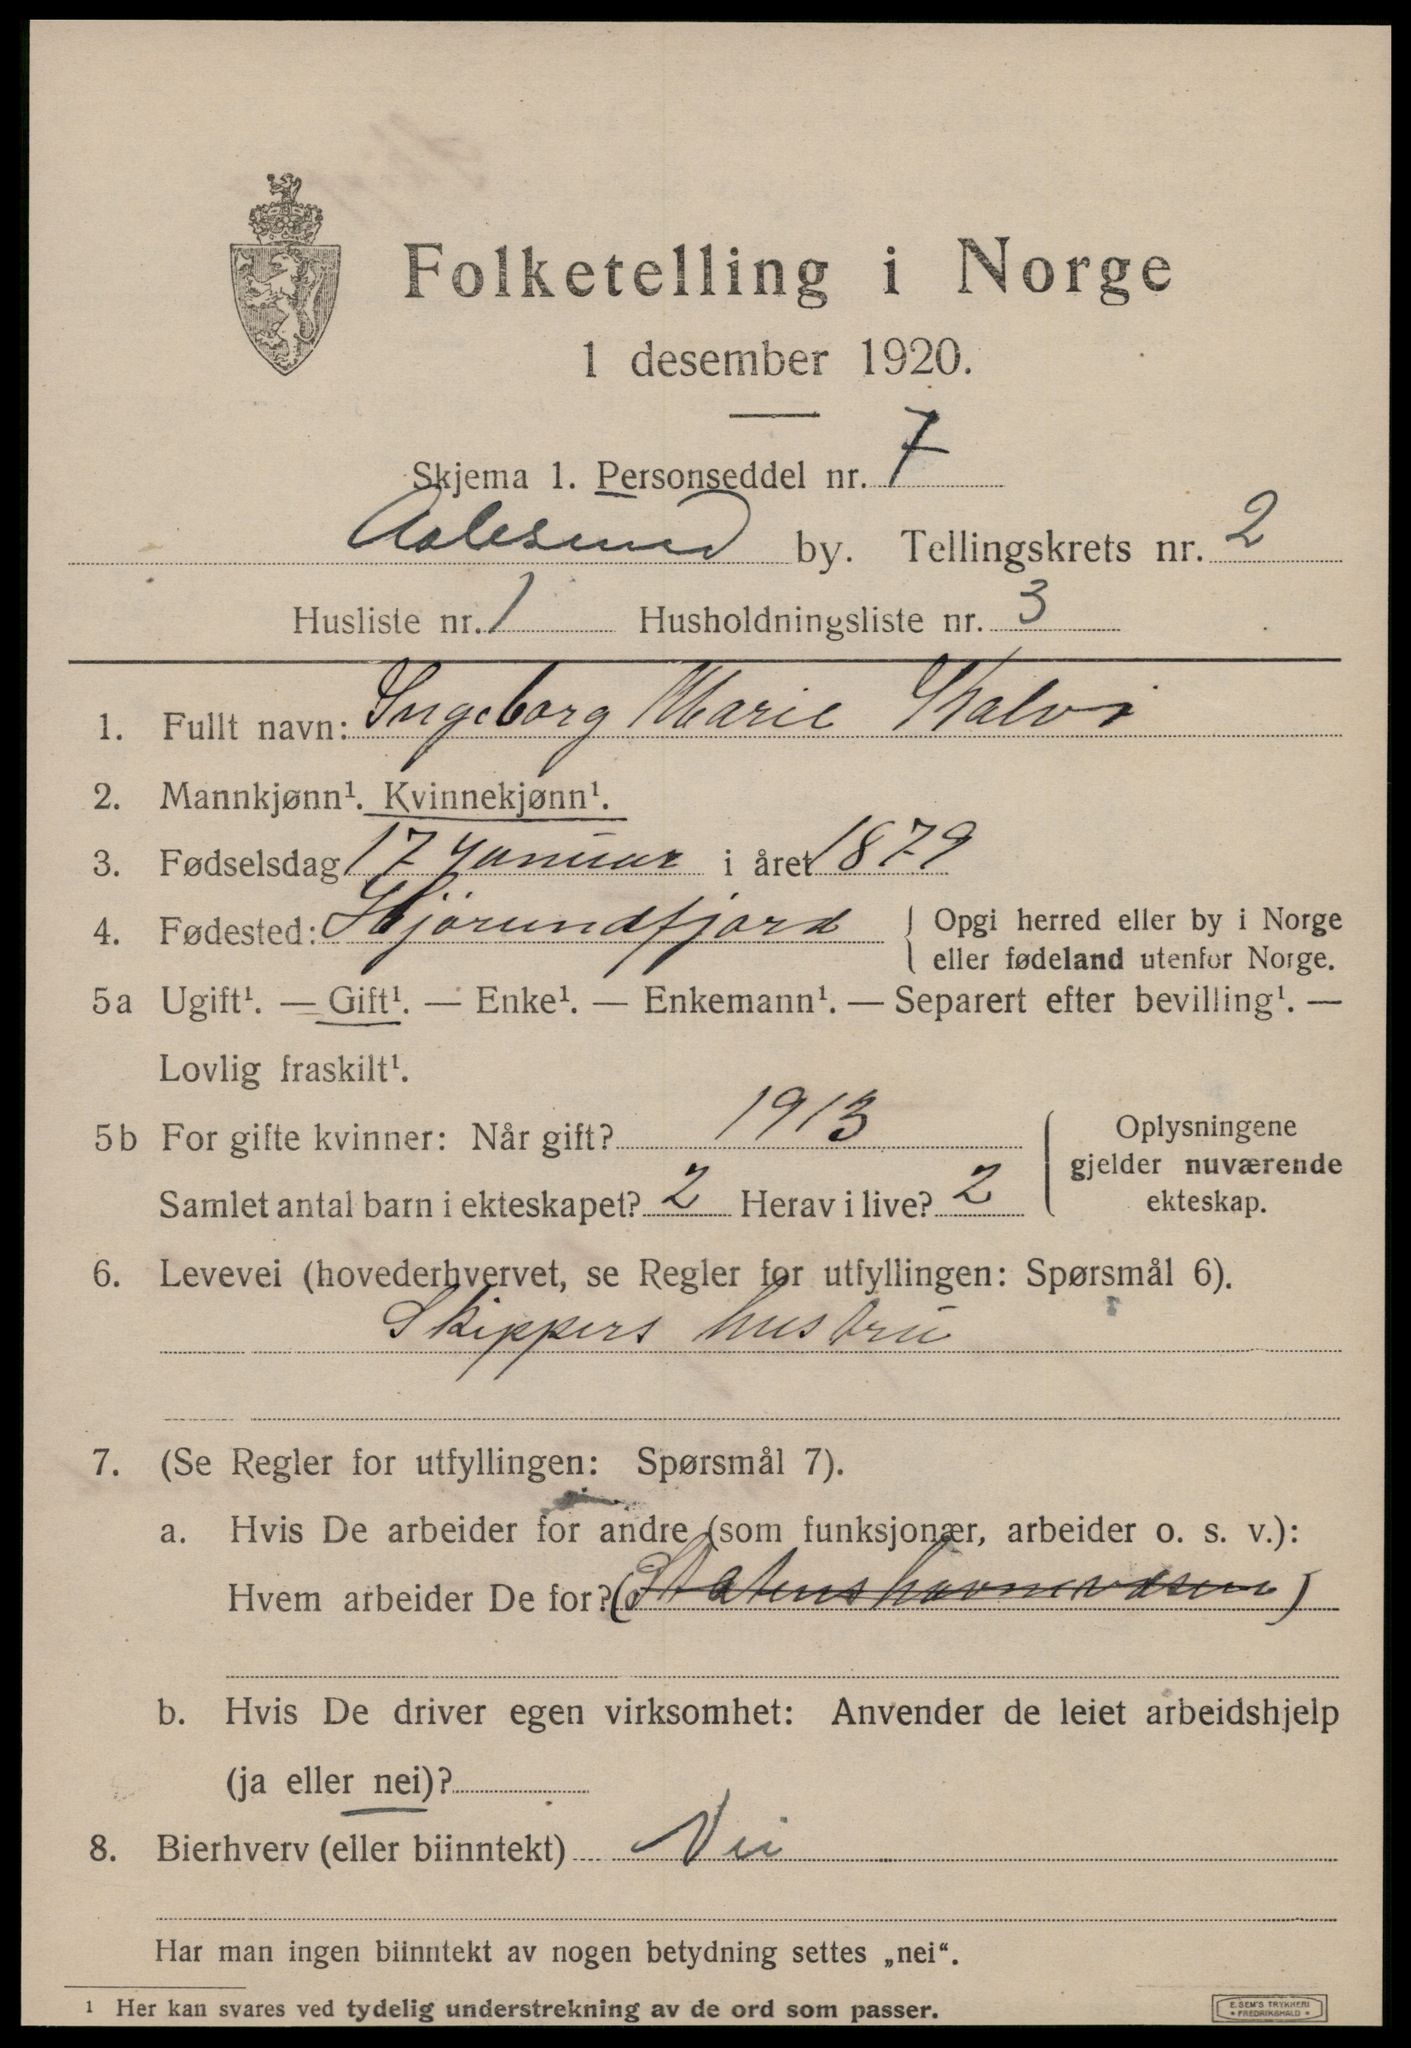 Folketelling i Norge
1 desember 1920.
Skjema 1. Personseddel nr. 7
Aalesund by. Tellingskrets nr. 2
Husliste nr. 1 Husholdningsliste nr. 3
1. Fullt navn: Ingeborg Marie Kalvø
2. Mannkjønn¹. Kvinnekjønn¹.
3. Fødselsdag 17 Januar i året 1879
4. Fødested: Hjörundfjord { Opgi herred eller by i Norge
eller fødeland utenfor Norge.
5a Ugift¹. — Gift¹. — Enke¹. — Enkemann¹. — Separert efter bevilling¹. —
Lovlig fraskilt¹.
5b For gifte kvinner: Når gift? 1913
Samlet antal barn i ekteskapet? 2 Herav i live? 2
{ Oplysningene
gjelder nuværende
ekteskap.
6. Levevei (hovederhvervet, se Regler for utfyllingen: Spørsmål 6).
Skippers hustru
7. (Se Regler for utfyllingen: Spørsmål 7).
a. Hvis De arbeider for andre (som funksjonær, arbeider o. s. v.):
Hvem arbeider De for? (Statens havnevæsen)
b. Hvis De driver egen virksomhet: Anvender de leiet arbeidshjelp
(ja eller nei)?
8. Bierhverv (eller biinntekt) Nei
Har man ingen biinntekt av nogen betydning settes „nei“.
¹ Her kan svares ved tydelig understrekning av de ord som passer.
E. SEM'S TRYKKERI
* FREDRIKSHALD *